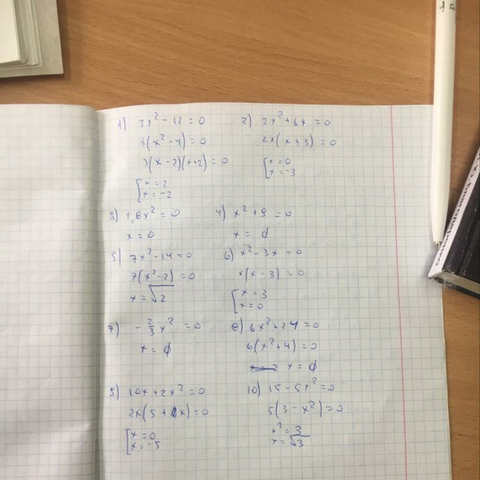 1) 3x² - 12 = 0
3(x² - 4) = 0
3(x - 2)(x + 2) = 0
[x = 2
x = -2
2) 2x² + 6x = 0
2x(x + 3) = 0
[x = 0
x = -3
3) 1,8x² = 0
x = 0
4) x² + 9 = 0
x = ∅
5) 7x² - 14 = 0
7(x² - 2) = 0
x = √2
6) x² - 3x = 0
x(x - 3) = 0
[x = 3
x = 0
7) -2/3 x² = 0
x = ∅
8) 6x² + 24 = 0
6(x² + 4) = 0
x = ∅
9) 10x + 2x² = 0
2x(5 + x) = 0
[x = 0
x = -5
10) 15 - 5x² = 0
5(3 - x²) = 0
x² = 3
x = √3